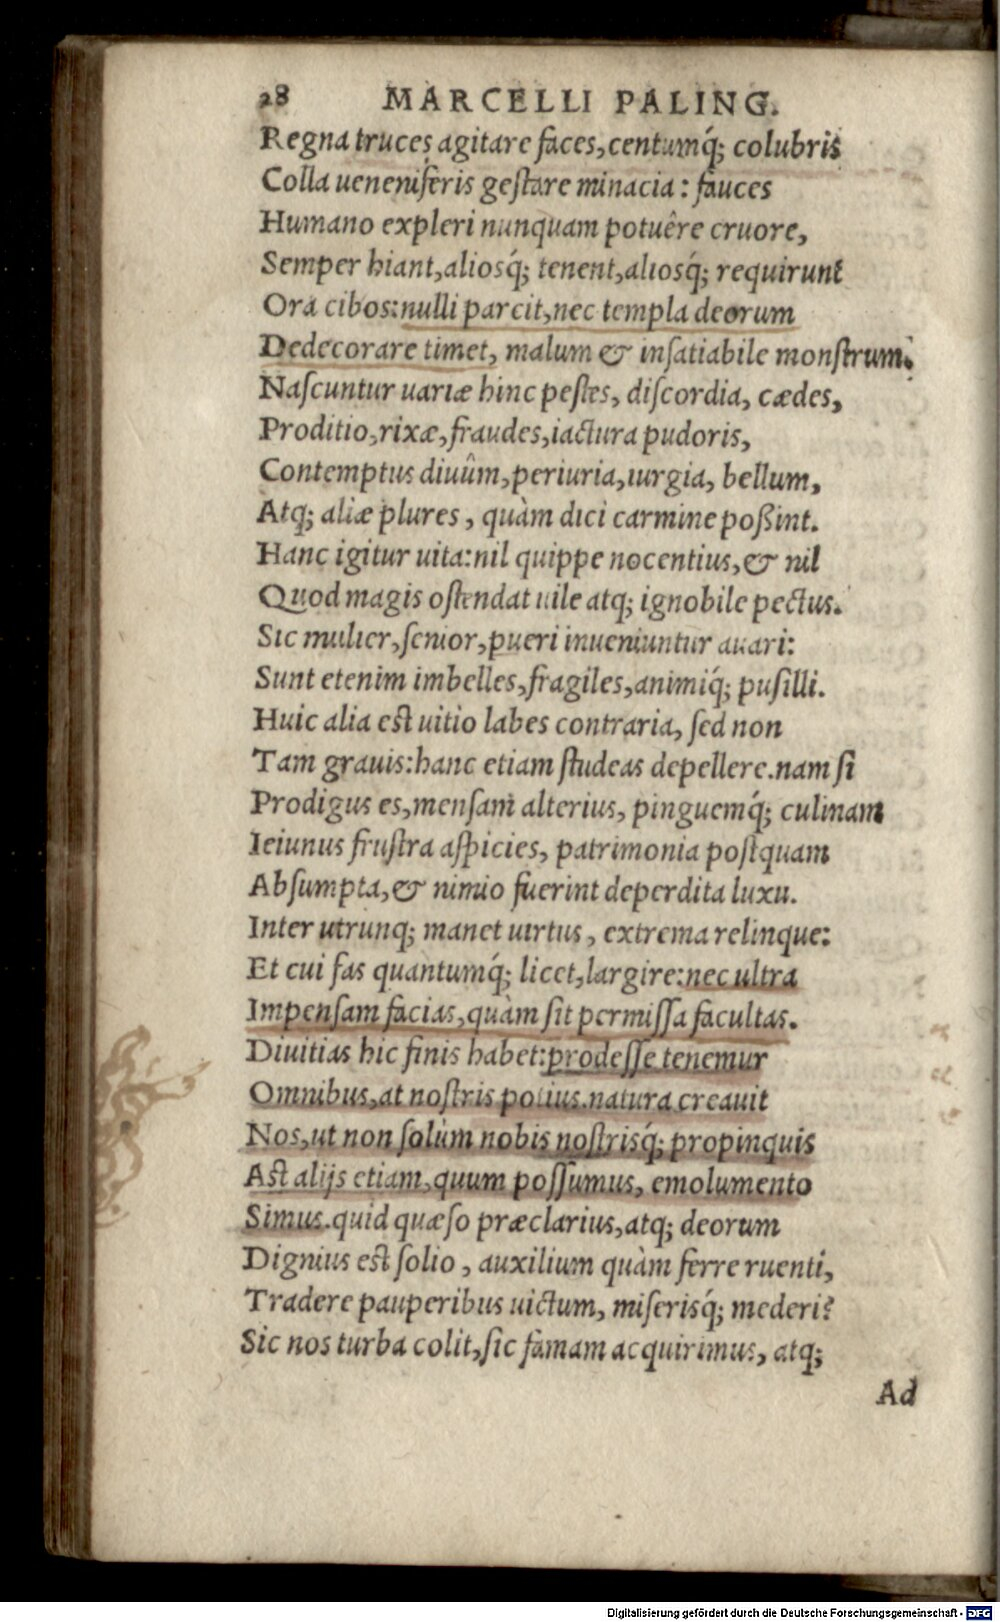 28 MARCELLI PALING.
Regna truces agitare faces, centumq́; colubris
Colla ueneniferis geſtare minacia: fauces
Humano expleri nunquam potuêre cruore,
Semper hiant, aliosq́; tenent, aliosq́; requirunt
Ora cibos: nulli parcit, nec templa deorum
Dedecorare timet, malum & inſatiabile monſtrum.
Naſcuntur uariæ hinc peſtes, diſcordia, cædes,
Proditio, rixæ, fraudes, iactura pudoris,
Contemptus diuûm, periuria, iurgia, bellum,
Atq; aliæ plures, quàm dici carmine poßint.
Hanc igitur uita: nil quippe nocentius, & nil
Quod magis oſtendat uile atq; ignobile pectus.
Sic mulier, ſenior, pueri inueniuntur auari:
Sunt etenim imbelles, fragiles, animiq́; puſilli.
Huic alia est uitio labes contraria, ſed non
Tam grauis: hanc etiam ſtudeas depellere. nam ſi
Prodigus es, menſam alterius, pinguemq́; culinam
Ieiunus fruſtra aſpicies, patrimonia poſtquam
Abſumpta, & nimio fuerint deperdita luxu.
Inter utrunq; manet uirtus, extrema relinque:
Et cui fas quantumq́; licet, largire: nec ultra
Impenſam facias, quàm ſit permiſſa facultas.
Diuitias hic finis habet: prodeſſe tenemur
Omnibus, at noſtris potius. natura creauit
Nos, ut non ſolùm nobis noſtrisq́; propinquis
Ast alijs etiam, quum poſſumus, emolumento
Simus. quid quæſo præclarius, atq; deorum
Dignius est ſolio, auxilium quàm ferre ruenti,
Tradere pauperibus uictum, miſerisq́; mederi?
Sic nos turba colit, ſic famam acquirimus, atq;
Ad
Digitalisierung gefördert durch die Deutsche Forschungsgemeinschaft - DFG